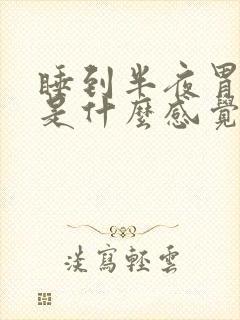 睡到半夜胃
是什麼感覺
淡寫輕雲